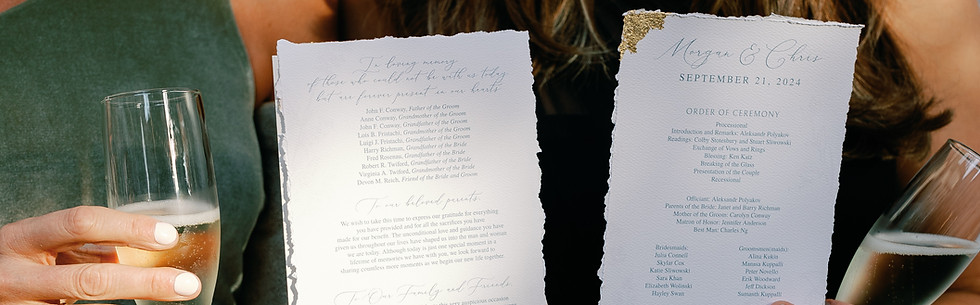 In loving memory
of those who could not be with us today
but are forever present in our hearts
John F. Conway, Father of the Groom
Anne Conway, Grandmother of the Groom
John E. Conway, Grandfather of the Groom
Lois B. Grandmother of the Groom
Luigi J. Grandfather of the Groom
Harry Richman, Grandfather of the Bride
Fred Rosenau, Grandfather of the Bride
Robert R. Twiford, Grandfather of the Bride
Virginia A. Twiford, Grandmother of the Bride
Devon M. Reich, Friend of the Bride and Groom
To our beloved parents
We wish to take this time to express our gratitude for everything
you have provided and for all the sacrifices you have
made for our benefit. The unconditional love and guidance you have
given us throughout our lives have shaped us into the man and woman
we are today. Although today is just one special moment in a
lifetime of memories we have with you, we look forward to
sharing countless more moments as we begin our new life together.
To Our Family and Friends
Morgan & Chris
SEPTEMBER 21, 2024
ORDER OF CEREMONY
Processional
Introduction and Remarks: Aleksandr Polyakov
Readings: Colby Stonebury and Stuart Sliwowski
Exchange of Vows and Rings
Blessing: Ken Katz
Breaking of the Glass
Presentation of the Couple
Recessional
Officiant: Aleksandr Polyakov
Parents of the Bride: Janet and Barry Richman
Mother of the Groom: Carolyn Conway
Matron of Honor: Jennifer Anderson
Best Man: Charles Ng
Bridesmaids:
Julia Connell
Skylar Cox
Katie Sliwowski
Sara Khan
Elizabeth Wolinski
Hayley Swan
Groomsmen(maids):
Alina Kukin
Manasa Kuppalli
Peter Novello
Erik Woodward
Jeff Dickson
Samanth Kuppalli